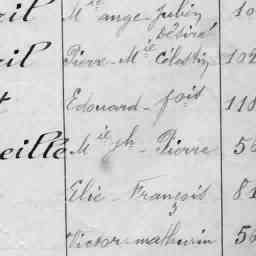 eil Mie ange Julien 10
Désiré
eil Pierre Mie Célestin 102
t Edouard fois 118
eille Mie jh Pierre 56
Elie François 81
Victor mathurin 56